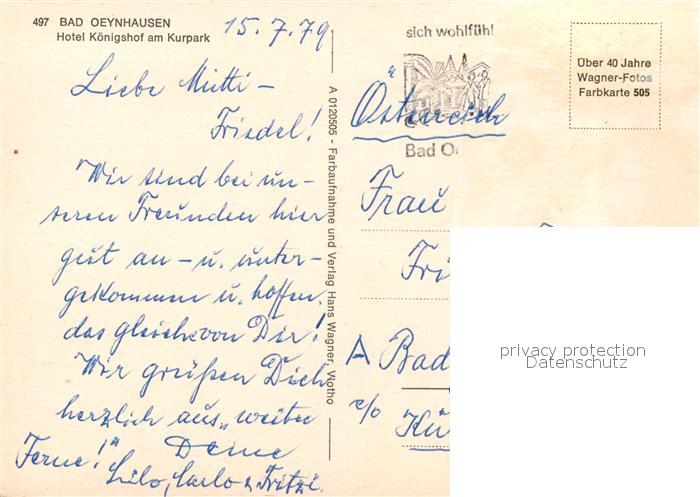 497 BAD OEYNHAUSEN
Hotel Königshof am Kurpark
15.7.79
Liebe Mutti –
Friedel!
Wir sind bei un-
seren Freunden hier
gut an- u. unter-
gekommen u. hoffen,
das gleiche von Dir!
Wir grüßen Dich
herzlich aus „weiter
Ferne!" Deine
Lilo, Carlo & Fritzi.
A 0120505 - Farbaufnahme und Verlag Hans Wagner, Vlotho
sich wohlfühl
Bad O
Über 40 Jahre
Wagner-Fotos
Farbkarte 505
Österreich
Frau
Fri
A Bad
c/o
Kü
privacy protection
Datenschutz